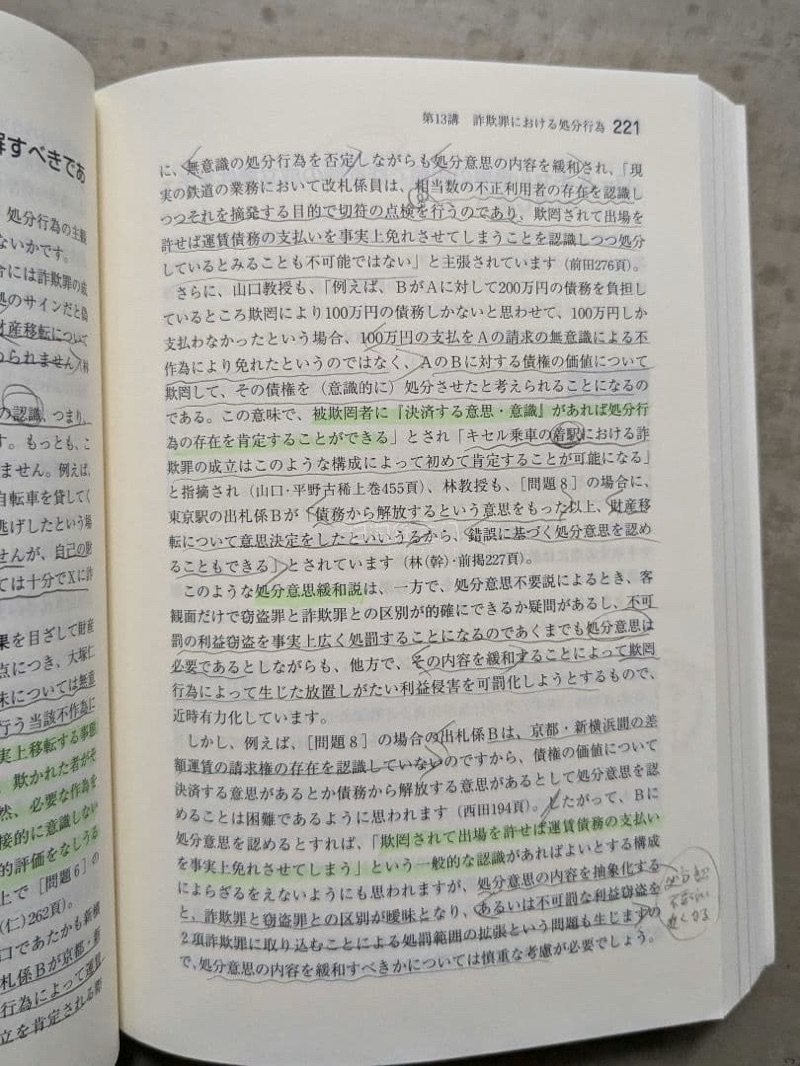 解すべきであ
処分行為の主観
ないかです。
分には詐欺罪の成
処のサインだと負
財産移転について
められません」(林
の認識、つまり、
す。もっとも、こ
ません。例えば、
自転車を貸してく
逃げしたという場
せんが、自己の財
ては十分でXに詐
果を目ざして財産
点につき、大塚仁
味については無意
行う当該不作為に
実上移転する事態
、欺かれた者がそ
然、必要な作為を
接的に意識しない
的評価をなしうる
上で［問題6］の
(仁)262頁)。
口であたかも新横
札係Bが京都・新
行為によって運賃
立を肯定される際
第13講　詐欺罪における処分行為　221
に、無意識の処分行為を否定しながらも処分意思の内容を緩和され、「現
実の鉄道の業務において改札係員は、相当数の不正利用者の存在を認識し
つつそれを摘発する目的で切符の点検を行うのであり、欺罔されて出場を
許せば運賃債務の支払いを事実上免れさせてしまうことを認識しつつ処分
しているとみることも不可能ではない」と主張されています（前田276頁）。
さらに、山口教授も、「例えば、BがAに対して200万円の債務を負担し
ているところ欺罔により100万円の債務しかないと思わせて、100万円しか
支払わなかったという場合、100万円の支払をAの請求の無意識による不
作為により免れたというのではなく、AのBに対する債権の価値について
欺罔して、その債権を（意識的に）処分させたと考えられることになるの
である。この意味で、被欺罔者に『決済する意思・意識』があれば処分行
為の存在を肯定することができる」とされ「キセル乗車の着駅における詐
欺罪の成立はこのような構成によって初めて肯定することが可能になる」
と指摘され（山口・平野古稀上巻455頁）、林教授も、［問題8］の場合に、
東京駅の出札係Bが「債務から解放するという意思をもった以上、財産移
転について意思決定をしたといいうるから、錯誤に基づく処分意思を認め
ることもできる」とされています（林(幹)・前掲227頁）。
このような処分意思緩和説は、一方で、処分意思不要説によるとき、客
観面だけで窃盗罪と詐欺罪との区別が的確にできるか疑問があるし、不可
罰の利益窃盗を事実上広く処罰することになるのであくまでも処分意思は
必要であるとしながらも、他方で、その内容を緩和することによって欺罔
行為によって生じた放置しがたい利益侵害を可罰化しようとするもので、
近時有力化しています。
しかし、例えば、［問題8］の場合の出札係Bは、京都・新横浜間の差
額運賃の請求権の存在を認識していないのですから、債権の価値について
決済する意思があるとか債務から解放する意思があるとして処分意思を認
めることは困難であるように思われます（西田194頁）。したがって、Bに
処分意思を認めるとすれば、「欺罔されて出場を許せば運賃債務の支払い
を事実上免れさせてしまう」という一般的な認識があればよいとする構成
によらざるをえないようにも思われますが、処分意思の内容を抽象化する
と、詐欺罪と窃盗罪との区別が曖昧となり、あるいは不可罰な利益窃盗を
2項詐欺罪に取り込むことによる処罰範囲の拡張という問題も生じますの
で、処分意思の内容を緩和すべきかについては慎重な考慮が必要でしょう。